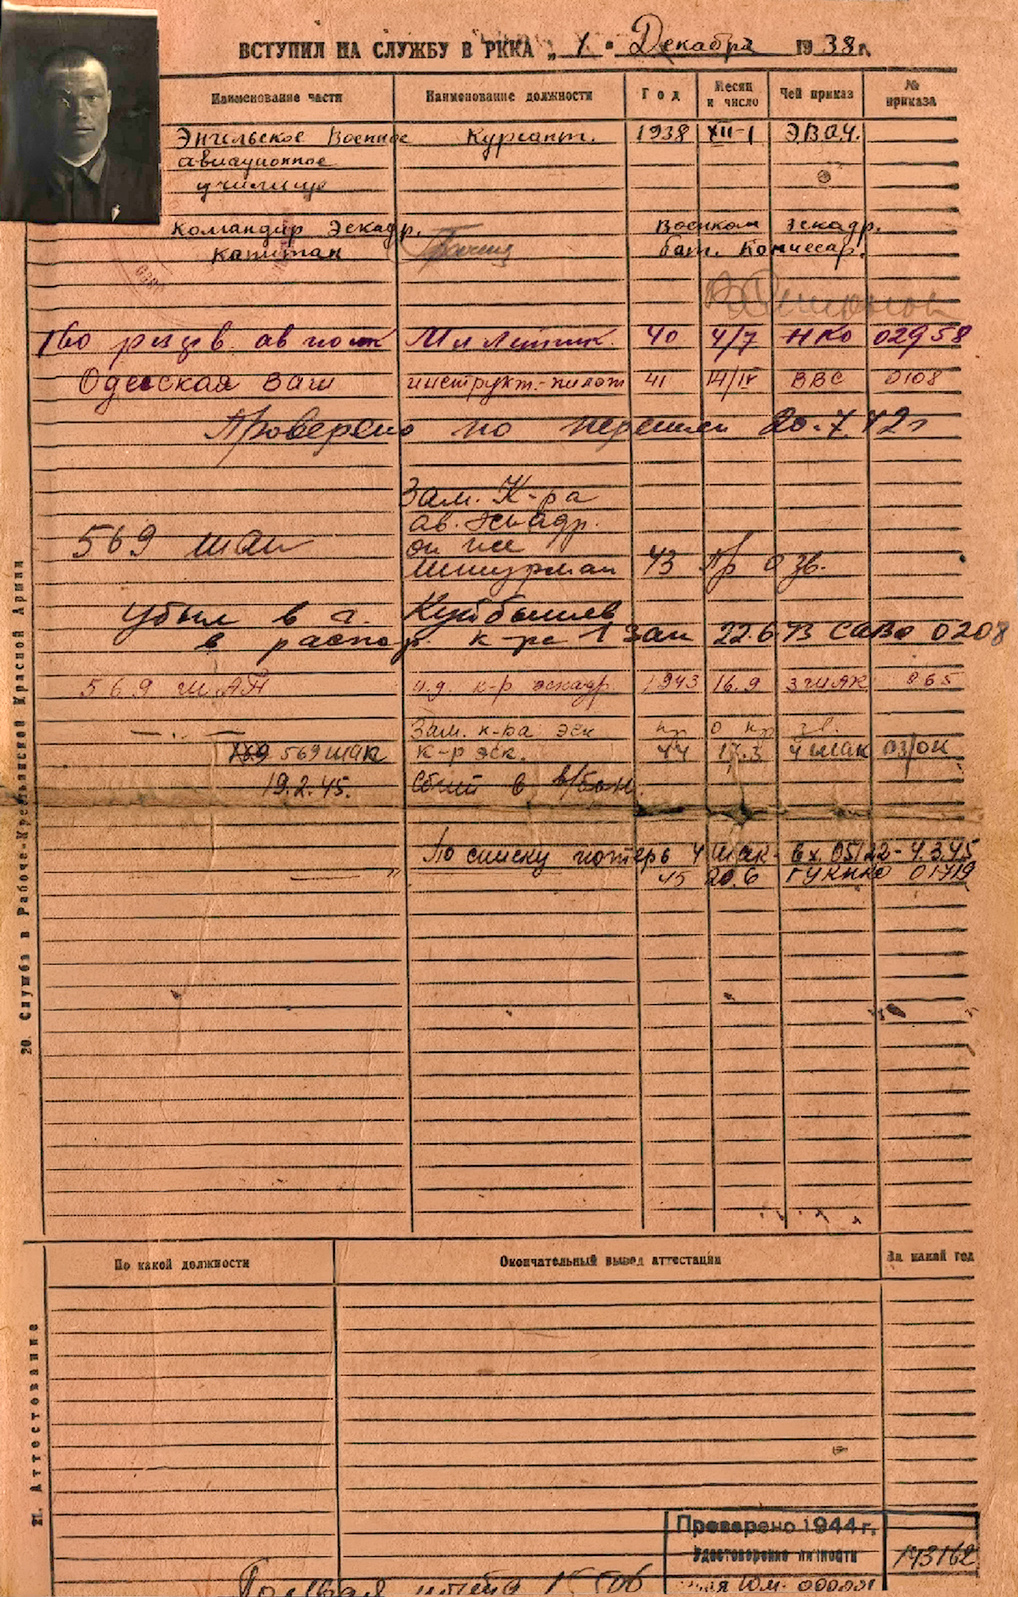 ВСТУПИЛ НА СЛУЖБУ В РККА „ 1 " Декабря 1938 г.
Наименование части Наименование должности Год Месяц и число Чей приказ № приказа
Энгельское Военное Курсант. 1938 XII-1 ЭВАЧ.
авиационное
училище
Командир Эскадр. Военком Эскадр.
капитан бат. Комиссар.
160 резерв. ав полк Мл Летчик. 40 4/7 НКО 02958
Одесская ваш инструкт.-пилот 41 14/IV ВВС 0108
Проверено по 20.7.42г
Зам. К-ра
ав. эскадр.
569 шап он же
штурман 43 Пр
Убыл в г. Куйбышев
в распор. к-ра 1 зап 22.6 43 САВО 0208
569 шАП и.д к-р эскадр 1943 16.9 3 шАК 065
Зам. к-ра эск
569 шап к-р эск. 44 17.3 4 шак
19.2.45. Сбит в в/бою.
По списку потерь 4 шак - вх. 05122 - 4.3.45
45 20.6 ГУК НКО 01719
20. Служба в Рабоче-Крестьянской Красной Армии
По какой должности Окончательный вывод аттестации За какой год
21. Аттестование
Проверено 1944 г.
Удостоверение личности
Полевая почта